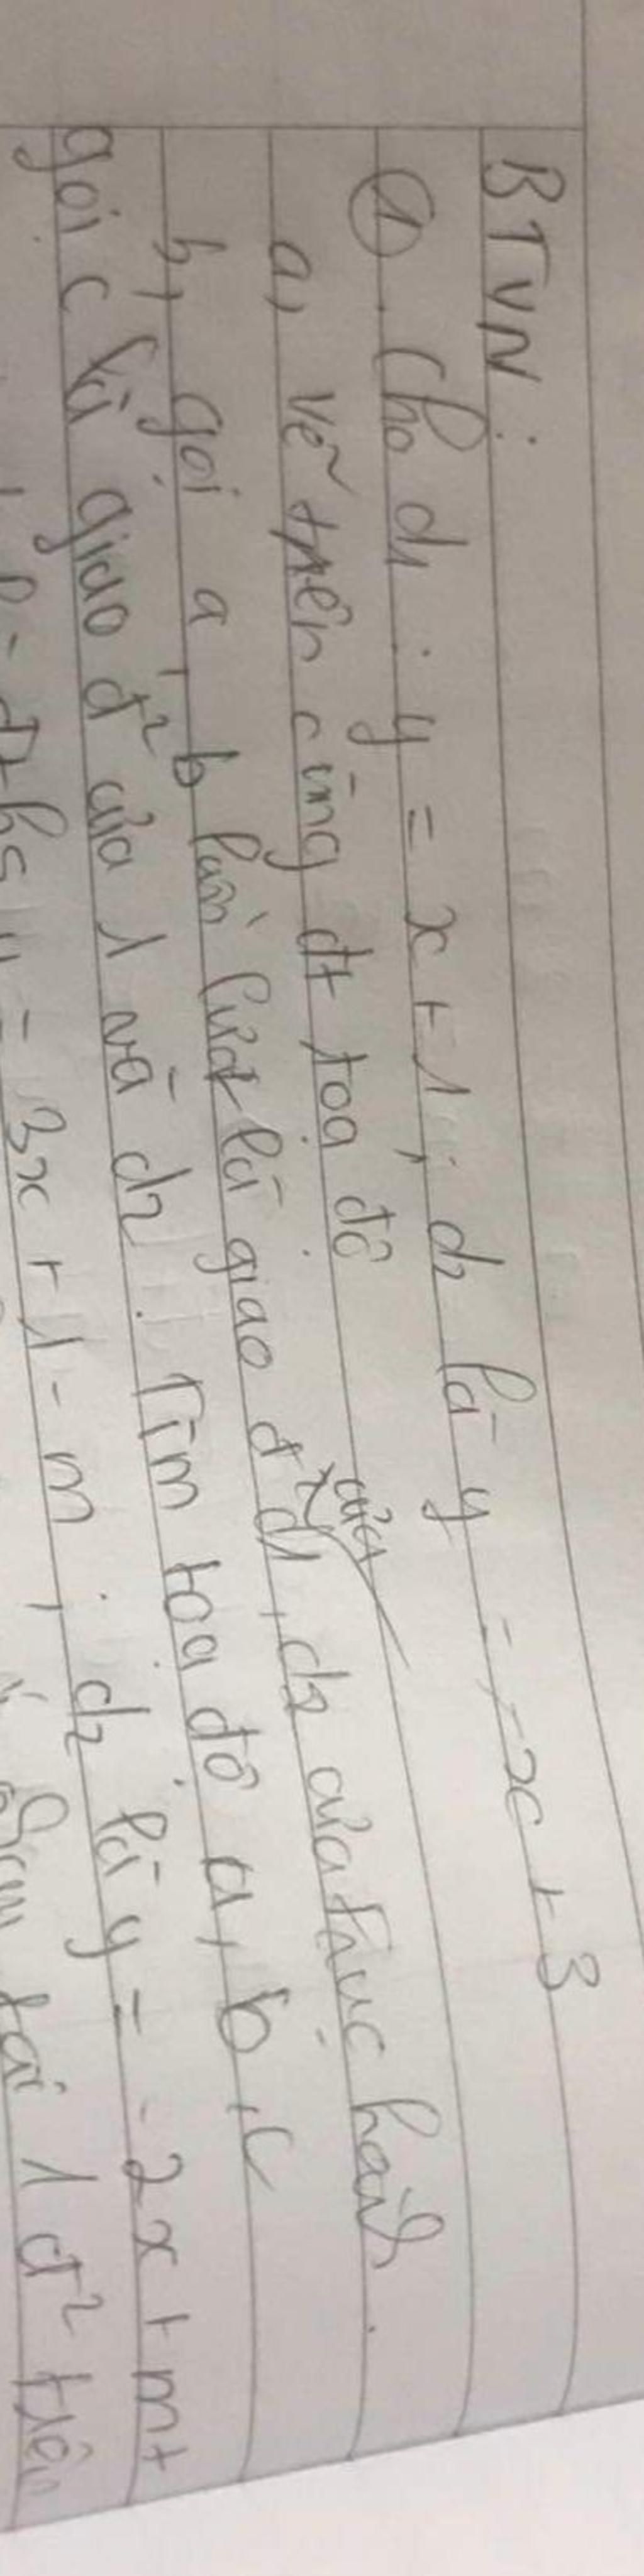 BTVN :
① . Cho d1 : y = x + 1 , d2 là y = -x + 3
a, vẽ trên cùng đt tọa độ
của
b, gọi a , b lần lượt là giao đ² d1 , d2 của trục hoành .
gọi c là giao đ² của 1 và d2 . Tìm tọa độ a, b , c
đths y = 3x + 1 - m ; d2 là y = -2x + m +
tại 1 đ² trên